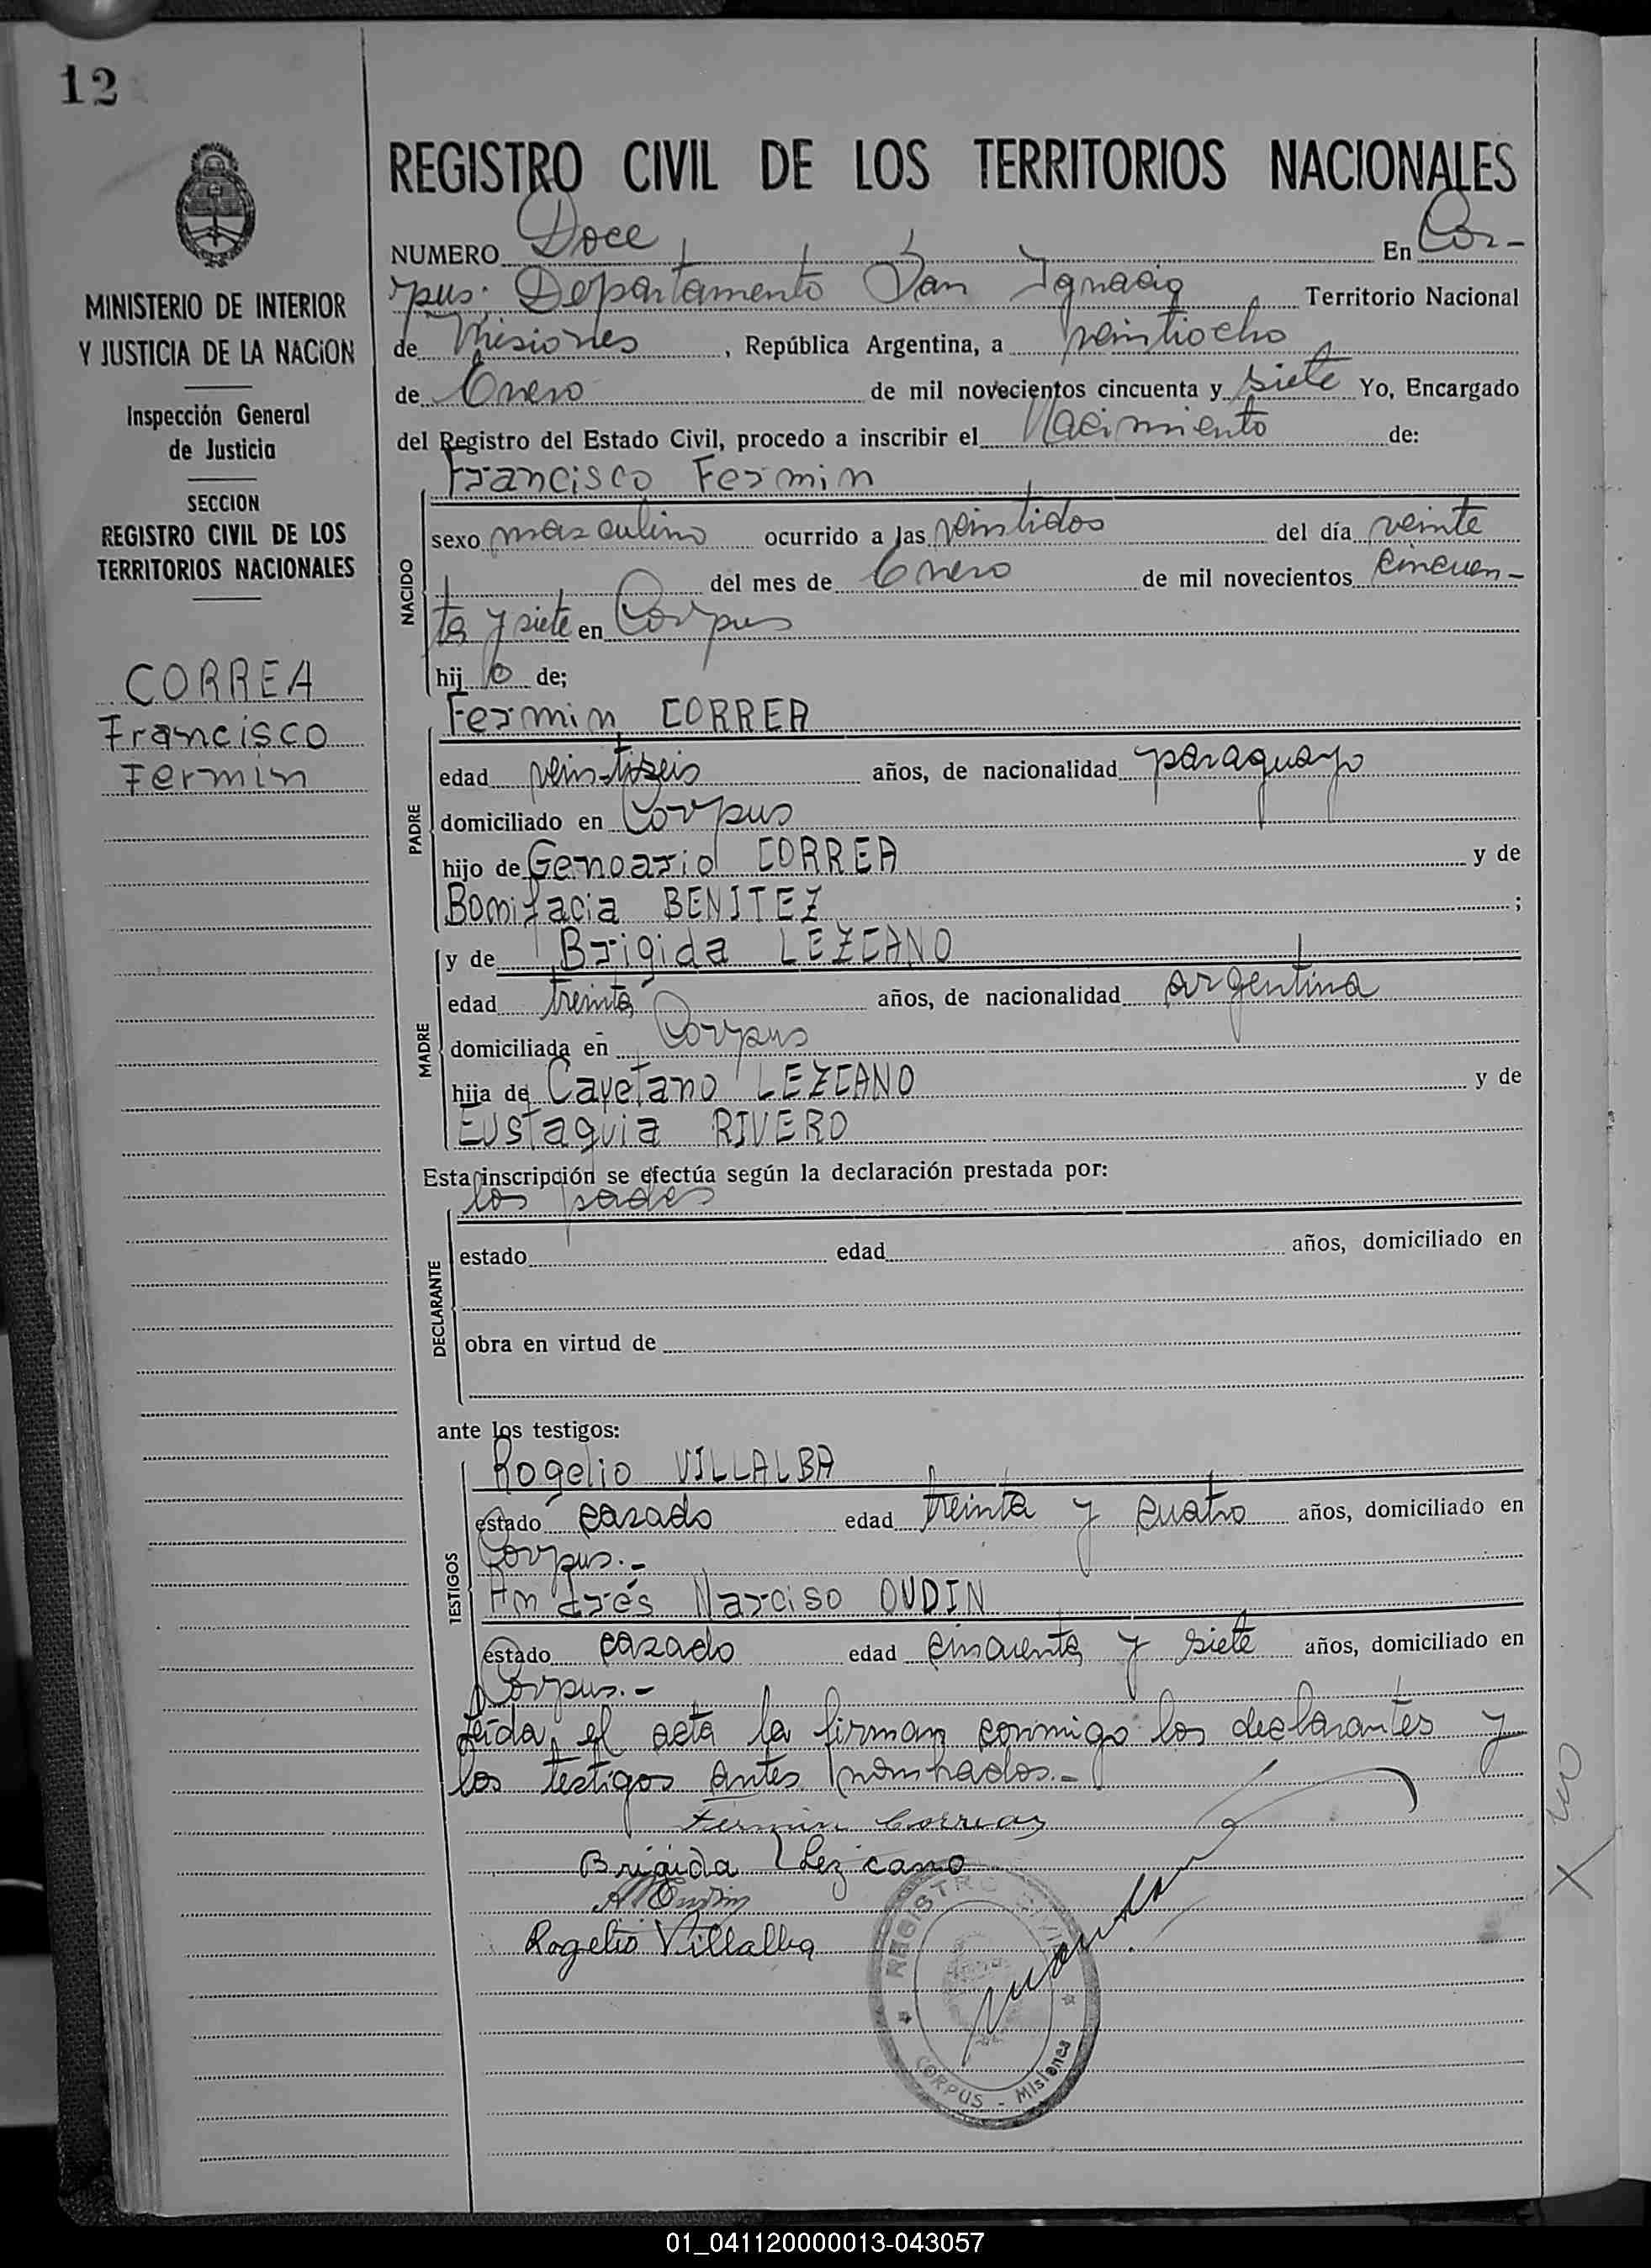 12
MINISTERIO DE INTERIOR
Y JUSTICIA DE LA NACION
Inspección General
de Justicia
SECCION
REGISTRO CIVIL DE LOS
TERRITORIOS NACIONALES
CORREA
Francisco
Fermin
REGISTRO CIVIL DE LOS TERRITORIOS NACIONALES
NUMERO Doce En Cor-
pus. Departamento San Ignacio Territorio Nacional
de Misiones, República Argentina, a veintiocho
de Enero de mil novecientos cincuenta y siete Yo, Encargado
del Registro del Estado Civil, procedo a inscribir el Nacimiento de:
Francisco Fermin
NACIDO
sexo masculino ocurrido a las veintidos del día veinte
del mes de Enero de mil novecientos cincuen-
ta y siete en Corpus
hijo de;
Fermin CORREA
PADRE
edad veintiseis años, de nacionalidad paraguayo
domiciliado en Corpus
hijo de Genoario CORREA y de
Bonifacia BENITEZ ;
y de Brigida LEZCANO
MADRE
edad treinta años, de nacionalidad argentina
domiciliada en Corpus
hija de Cayetano LEZCANO y de
Eustaquia RIVERO
Esta inscripción se efectúa según la declaración prestada por:
los padres
DECLARANTE
estado edad años, domiciliado en
obra en virtud de
ante los testigos:
Rogelio VILLALBA
TESTIGOS
estado casado edad treinta y cuatro años, domiciliado en
Corpus.-
Andrés Narciso OUDIN
estado casado edad cincuenta y siete años, domiciliado en
Corpus.-
Leída, el acta la firman conmigo los declarantes y
los testigos antes nombrados.-
Fermin Correa
Brigida Lezcano
A Oudin
Rogelio Villalba
REGISTRO CIVIL
CORPUS - Misiones
01_041120000013-043057